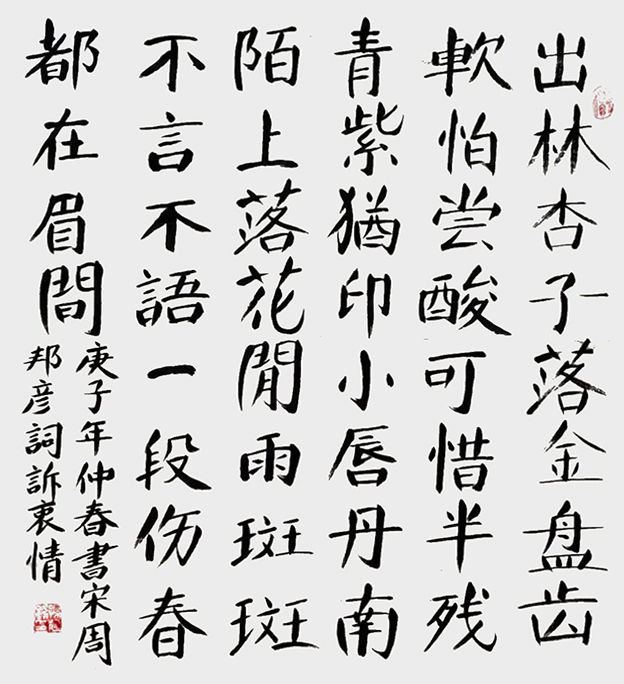 出林杏子落金盘齿
軟怕尝酸可惜半残
青紫猶印小唇丹南
陌上落花閒雨斑斑
不言不語一段伤春
都在眉間
庚子年仲春書宋周
邦彦詞訴衷情